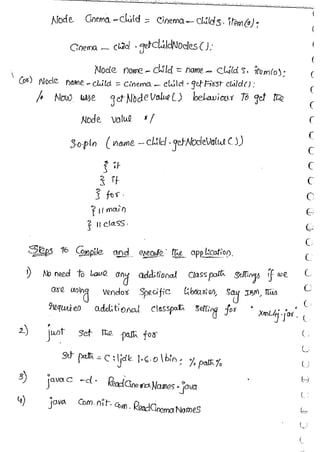 Node Cinema-child = cinema-childs.item(0);
Cinema-child.getchildNodes();
Node name-child = name-childs.item(0);
(or) Node name-child = cinema-child.getFirst child();
/* Now use getNodeValue() behaviour To get the
Node value */
S.o.pln (name-child.getNodeValue())
} if
} if
} for.
} // main
} // class.
Steps to Compile and execute the application.
1) No need to have any additional classpath settings if we
are using vendor specific libraries, say IBM, this
requires additional classpath setting for 'xml4j.jar'.
2) just set the path for
Set path = C:\jdk 1.6.0\bin; %path%
3) javac -d . ReadCinemaNames.java
4) java com.nit.com.ReadCinemaNames